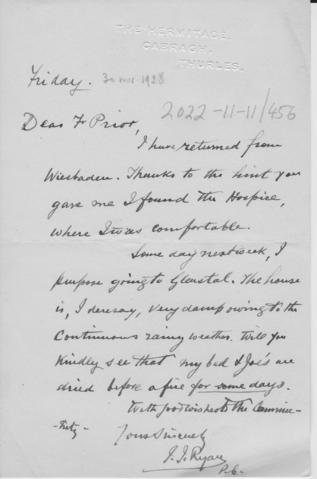 THE HERMITAGE,
CABRAGH,
THURLES.
Friday. 30 Nov. 1928
2022-11-11/456
Dear Fr Prior,
I have returned from
Wiesbaden. Thanks to the hint you
gave me I found the Hospice,
where I was comfortable.
Some day next week, I
purpose going to Glenstal. The house
is, I daresay, very damp owing to the
continuous rainy weather. Will you
kindly see that my bed & Joe's are
dried before a fire for some days.
With good wishes to the Commu-
-nity.
Yours Sincerely
J. J. Ryan
P.C.